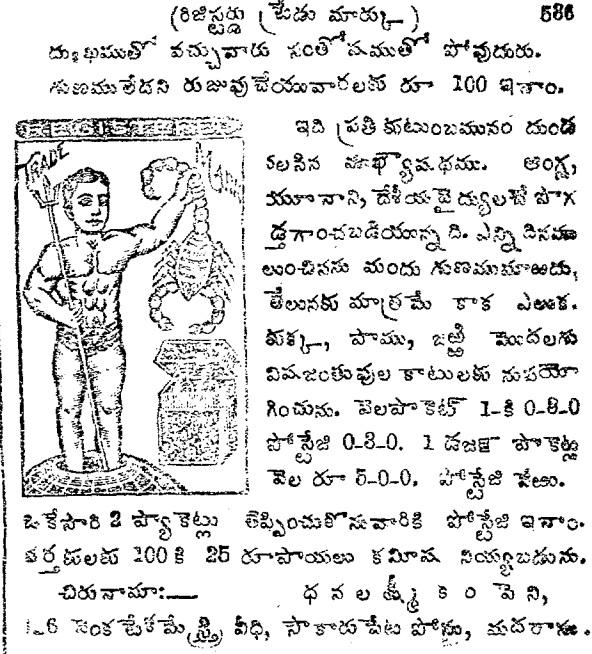 (రిజిస్టర్డు ట్రేడు మార్కు) 586
దుఃఖముతో వచ్చువారు సంతోషముతో పోవుదురు.
గుణములేదని రుజువుచేయువారలకు రూ 100 ఇనాం.
TRADE MARK
ఇది ప్రతి కుటుంబమునం దుండ
వలసిన ముఖ్యౌషధము. ఆంగ్ల,
యూనాని, దేశీయవైద్యులచే పొగ
డ్తగాంచబడియున్నది. ఎన్ని దినము
లుంచినను మందు గుణముమాఱదు,
తేలునకు మాత్రమే కాక ఎఱుక.
కుక్క, పాము, జఱ్ఱి మొదలగు
విషజంతువుల కాటులకు నుపయో
గించును. వెలపాకెట్ 1-కి 0-8-0
పోస్టేజి 0-8-0. 1 డజన్ పాకెట్లు
వెల రూ 5-0-0. పోస్టేజి వేఱు.
ఒకేసారి 2 ప్యాకెట్లు తెప్పించుకొనువారికి పోస్టేజి ఇనాం.
వర్తకులకు 100 కి 25 రూపాయలు కమీష నియ్యబడును.
చిరునామా:— ధనలక్ష్మీ కంపెని,
1-6 వెంకటేశమేస్త్రి వీధి, సౌకారుపేట పోస్టు, మదరాసు.